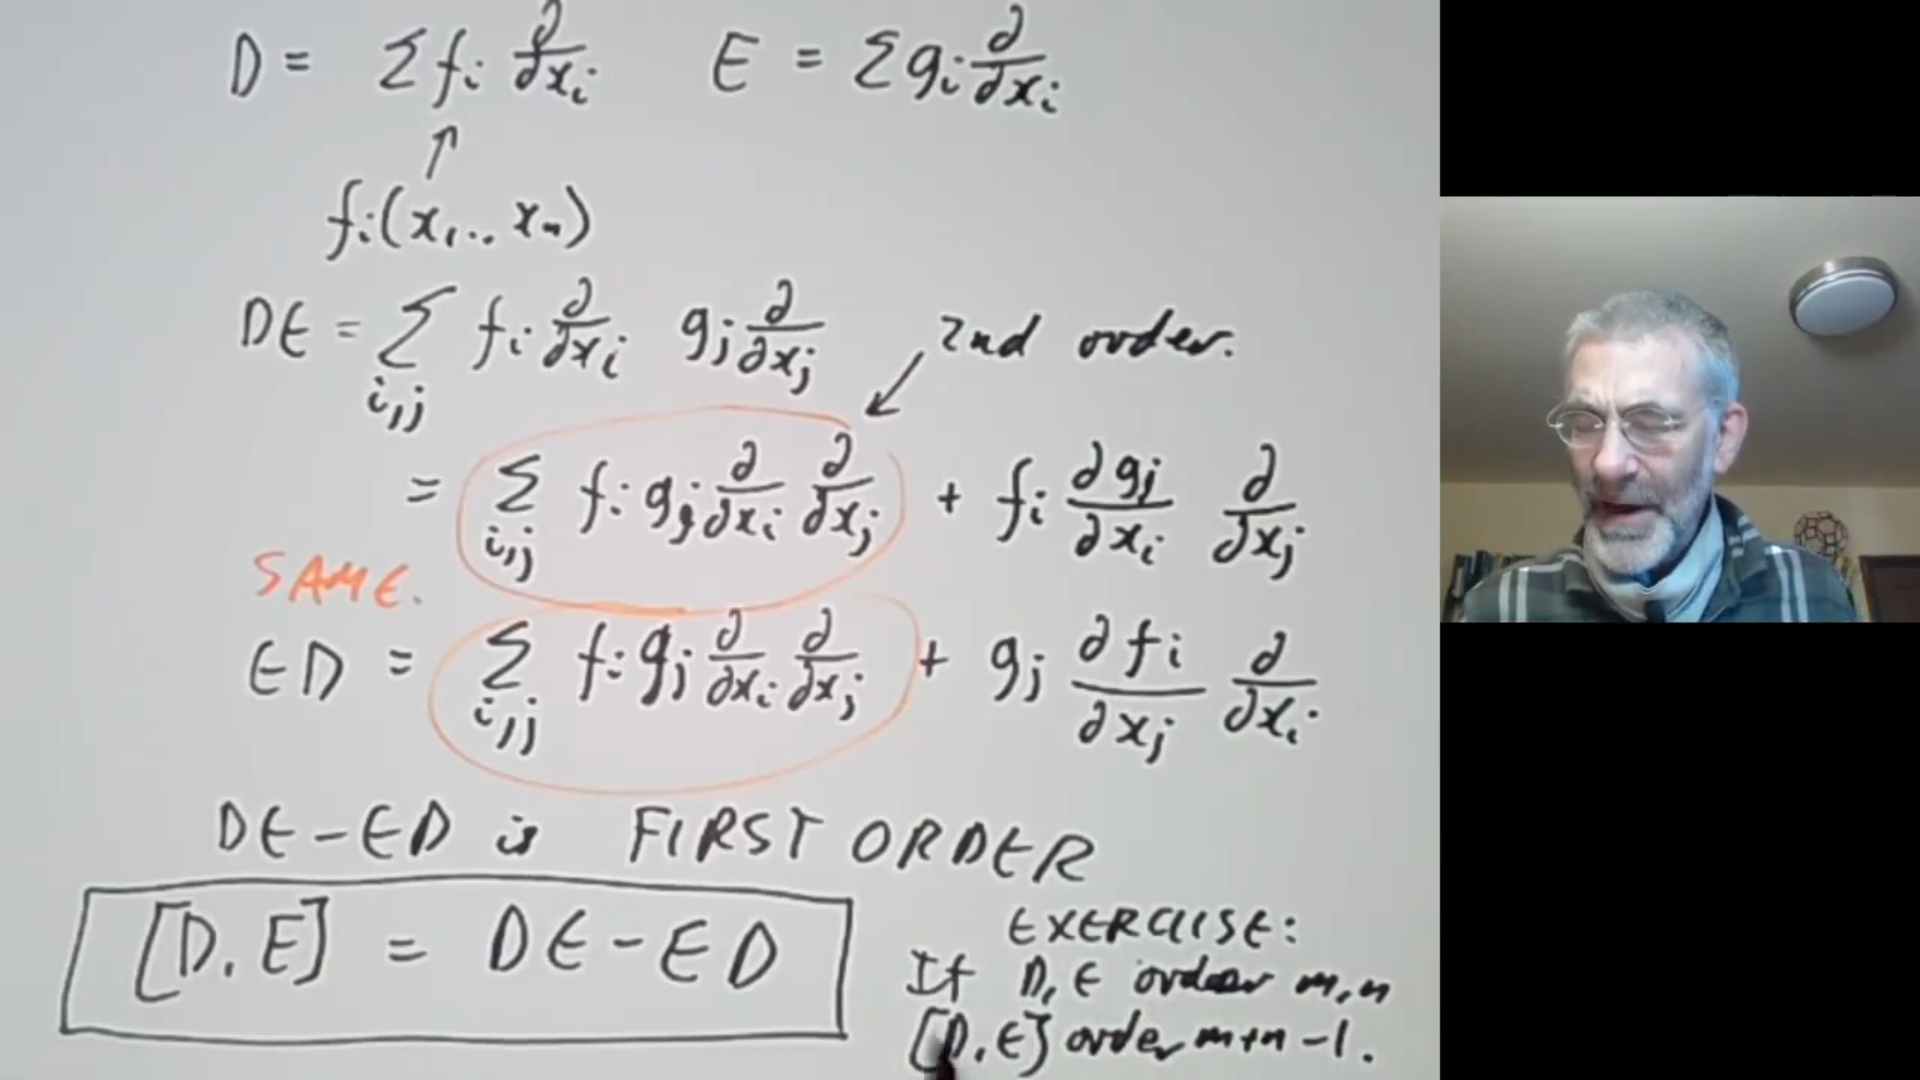 D = Σ fᵢ ∂/∂xᵢ E = Σ gᵢ ∂/∂xᵢ
↑
fᵢ(x₁.. xₙ)
DE = Σ_{i,j} fᵢ ∂/∂xᵢ gⱼ ∂/∂xⱼ 2nd order.
= Σ_{i,j} fᵢ gⱼ ∂/∂xᵢ ∂/∂xⱼ + fᵢ ∂gⱼ/∂xᵢ ∂/∂xⱼ
SAME.
ED = Σ_{i,j} fᵢ gⱼ ∂/∂xᵢ ∂/∂xⱼ + gⱼ ∂fᵢ/∂xⱼ ∂/∂xᵢ
DE - ED is FIRST ORDER
[D, E] = DE - ED
EXERCISE:
If D, E order m, n
[D, E] order m+n-1.